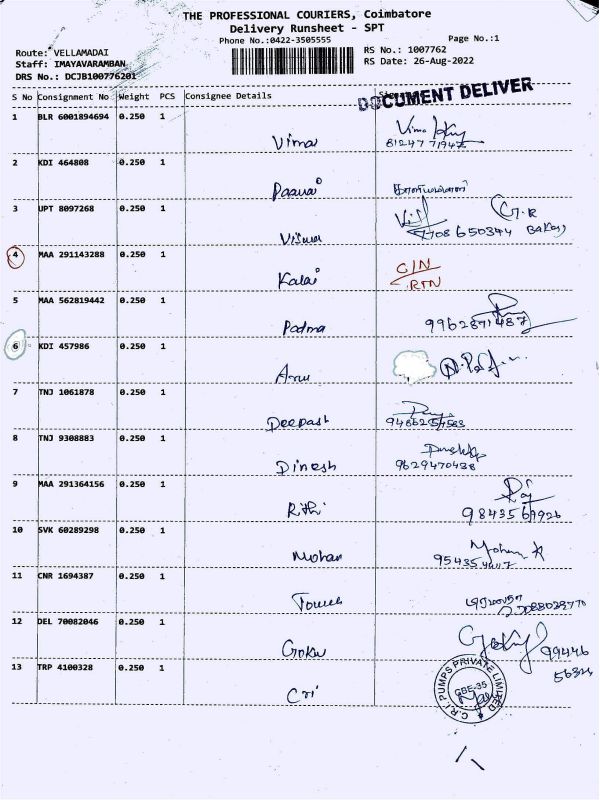 THE PROFESSIONAL COURIERS, Coimbatore
Delivery Runsheet - SPT
Phone No.:0422-3505555 Page No.:1
Route: VELLAMADAI RS No.: 1007762
Staff: IMAYAVARAMBAN RS Date: 26-Aug-2022
DRS No.: DCJB100776201
S No Consignment No Weight PCS Consignee Details
DOCUMENT DELIVER
1 BLR 6001894694 0.250 1 Vimal
2 KDI 464808 0.250 1
3 UPT 8097268 0.250 1 G.R
7708650344 BAKery
4 MAA 291143288 0.250 1 Kalai C/N
RTN
5 MAA 562819442 0.250 1 Padma 9962871487
6 KDI 457986 0.250 1 Arru
7 TNJ 1061878 0.250 1 Deepash
8 TNJ 9308883 0.250 1 Dinesh
9629470438
9 MAA 291364156 0.250 1 Rithi
10 SVK 60289298 0.250 1 Mohan Mohan R
11 CNR 1694387 0.250 1
12 DEL 70082046 0.250 1 Goku 99446
13 TRP 4100328 0.250 1 Cri
C.R.I. PUMPS PRIVATE LIMITED
CBE-35